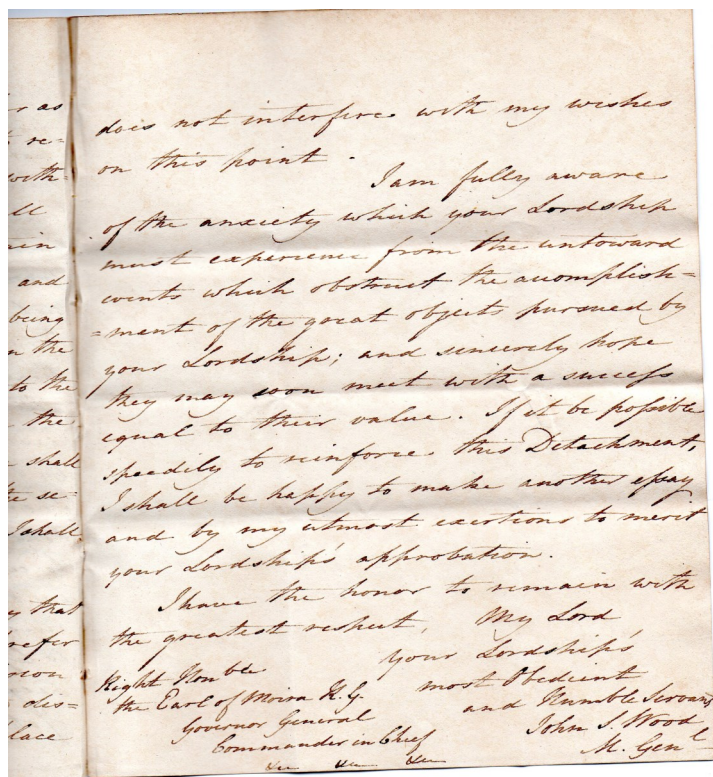 r as
re=
with=
ll
ain
and
being
n the
to the
the
shall
the se=
I shall
y that
refer
rion
dis=
lace
does not interfere with my wishes
on this point.
I am fully aware
of the anxiety which your Lordship
must experience from the untoward
events which obstruct the accomplish=
=ment of the great objects pursued by
your Lordship; and sincerely hope
they may soon meet with a success
equal to their value. If it be possible
speedily to reinforce this Detachment,
I shall be happy to make another essay
and by my utmost exertions to merit
your Lordship's approbation.
I have the honor to remain with
the greatest respect, My Lord
your Lordship's
most Obedient
and Humble Servant
John S. Wood
M. Genl
Right Honble
the Earl of Moira K.G.
Governor General
Commander in Chief
&c &c &c